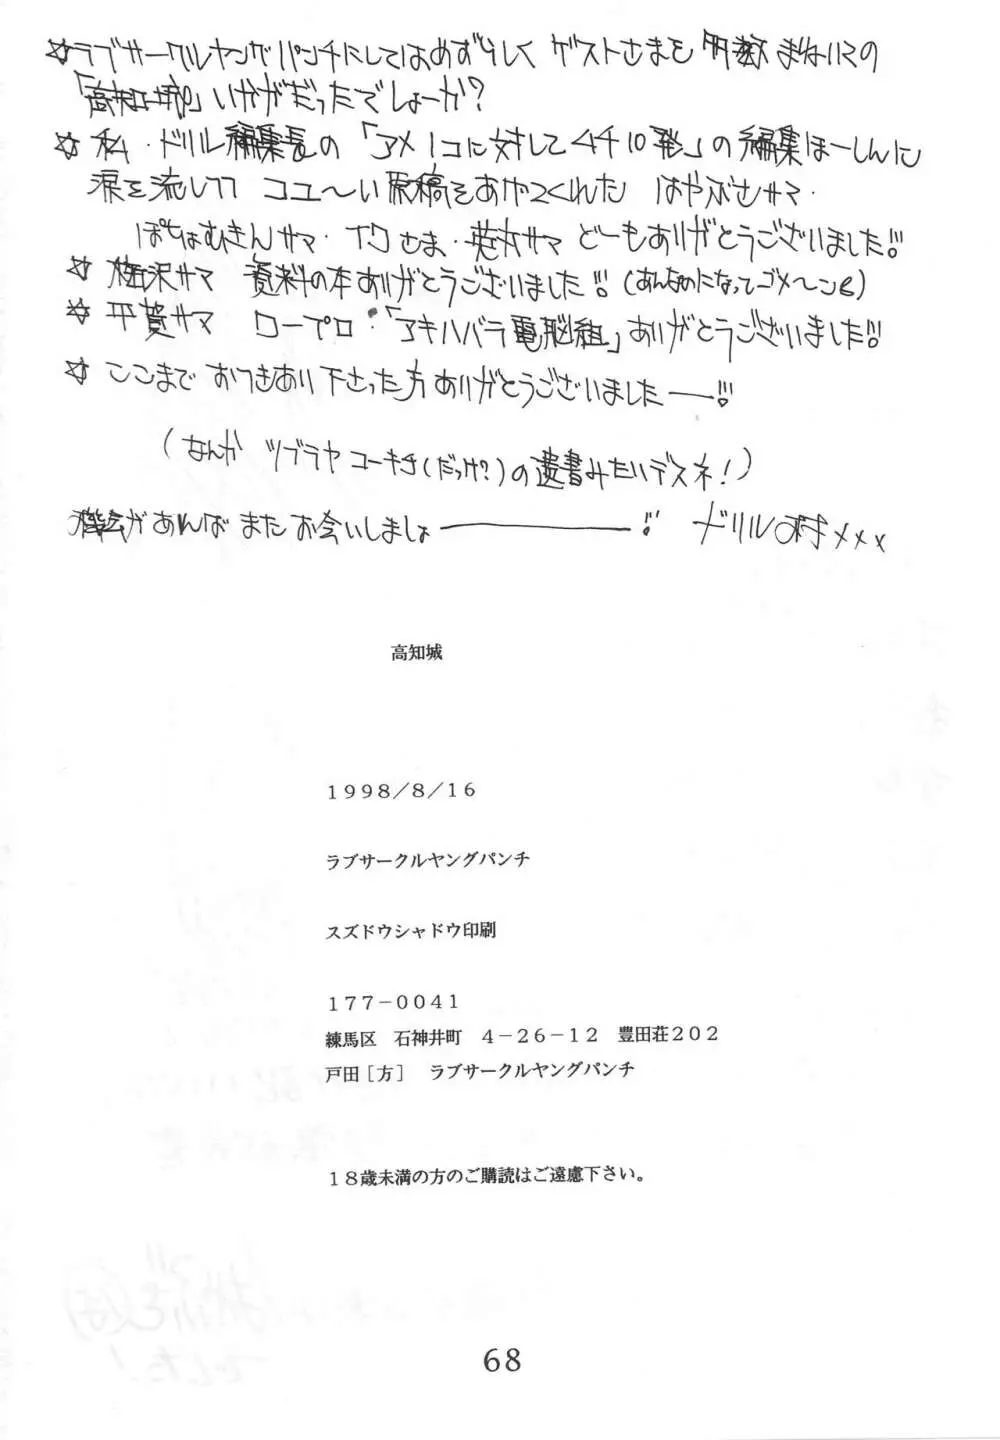 ☆ラブサークルヤングパンチにしてはめずらしく ゲストさまを 多数 まねいての
「高知城」いかがだったでしょーか？
☆ 私・ドリル編集長の「アメノコに対してムチ10発」の編集ほーしんに
涙を流しつつ コユ〜い原稿をあげてくれた はやぶさサマ・
ぽちはむきんサマ・イワさま・英太サマ どーもありがとうございました!!
☆ 梅沢サマ 資料の本ありがとうございました!!(あんなのになってゴメ〜ン
☆ 平賀サマ ロープロ・「アキハバラ電脳組」ありがとうございました!!
☆ ここまで おつきあい下さった方ありがとうございましたー!!
(なんか ツブラヤコーキチ(だっけ?)の遺書みたいデスネ!)
機会があれば またお会いしましょ―――!! ドリル村×××
高知城
1998／8／16
ラブサークルヤングパンチ
スズドウシャドウ印刷
177－0041
練馬区　石神井町　4－26－12　豊田荘202
戸田［方］　ラブサークルヤングパンチ
18歳未満の方のご購読はご遠慮下さい。
68